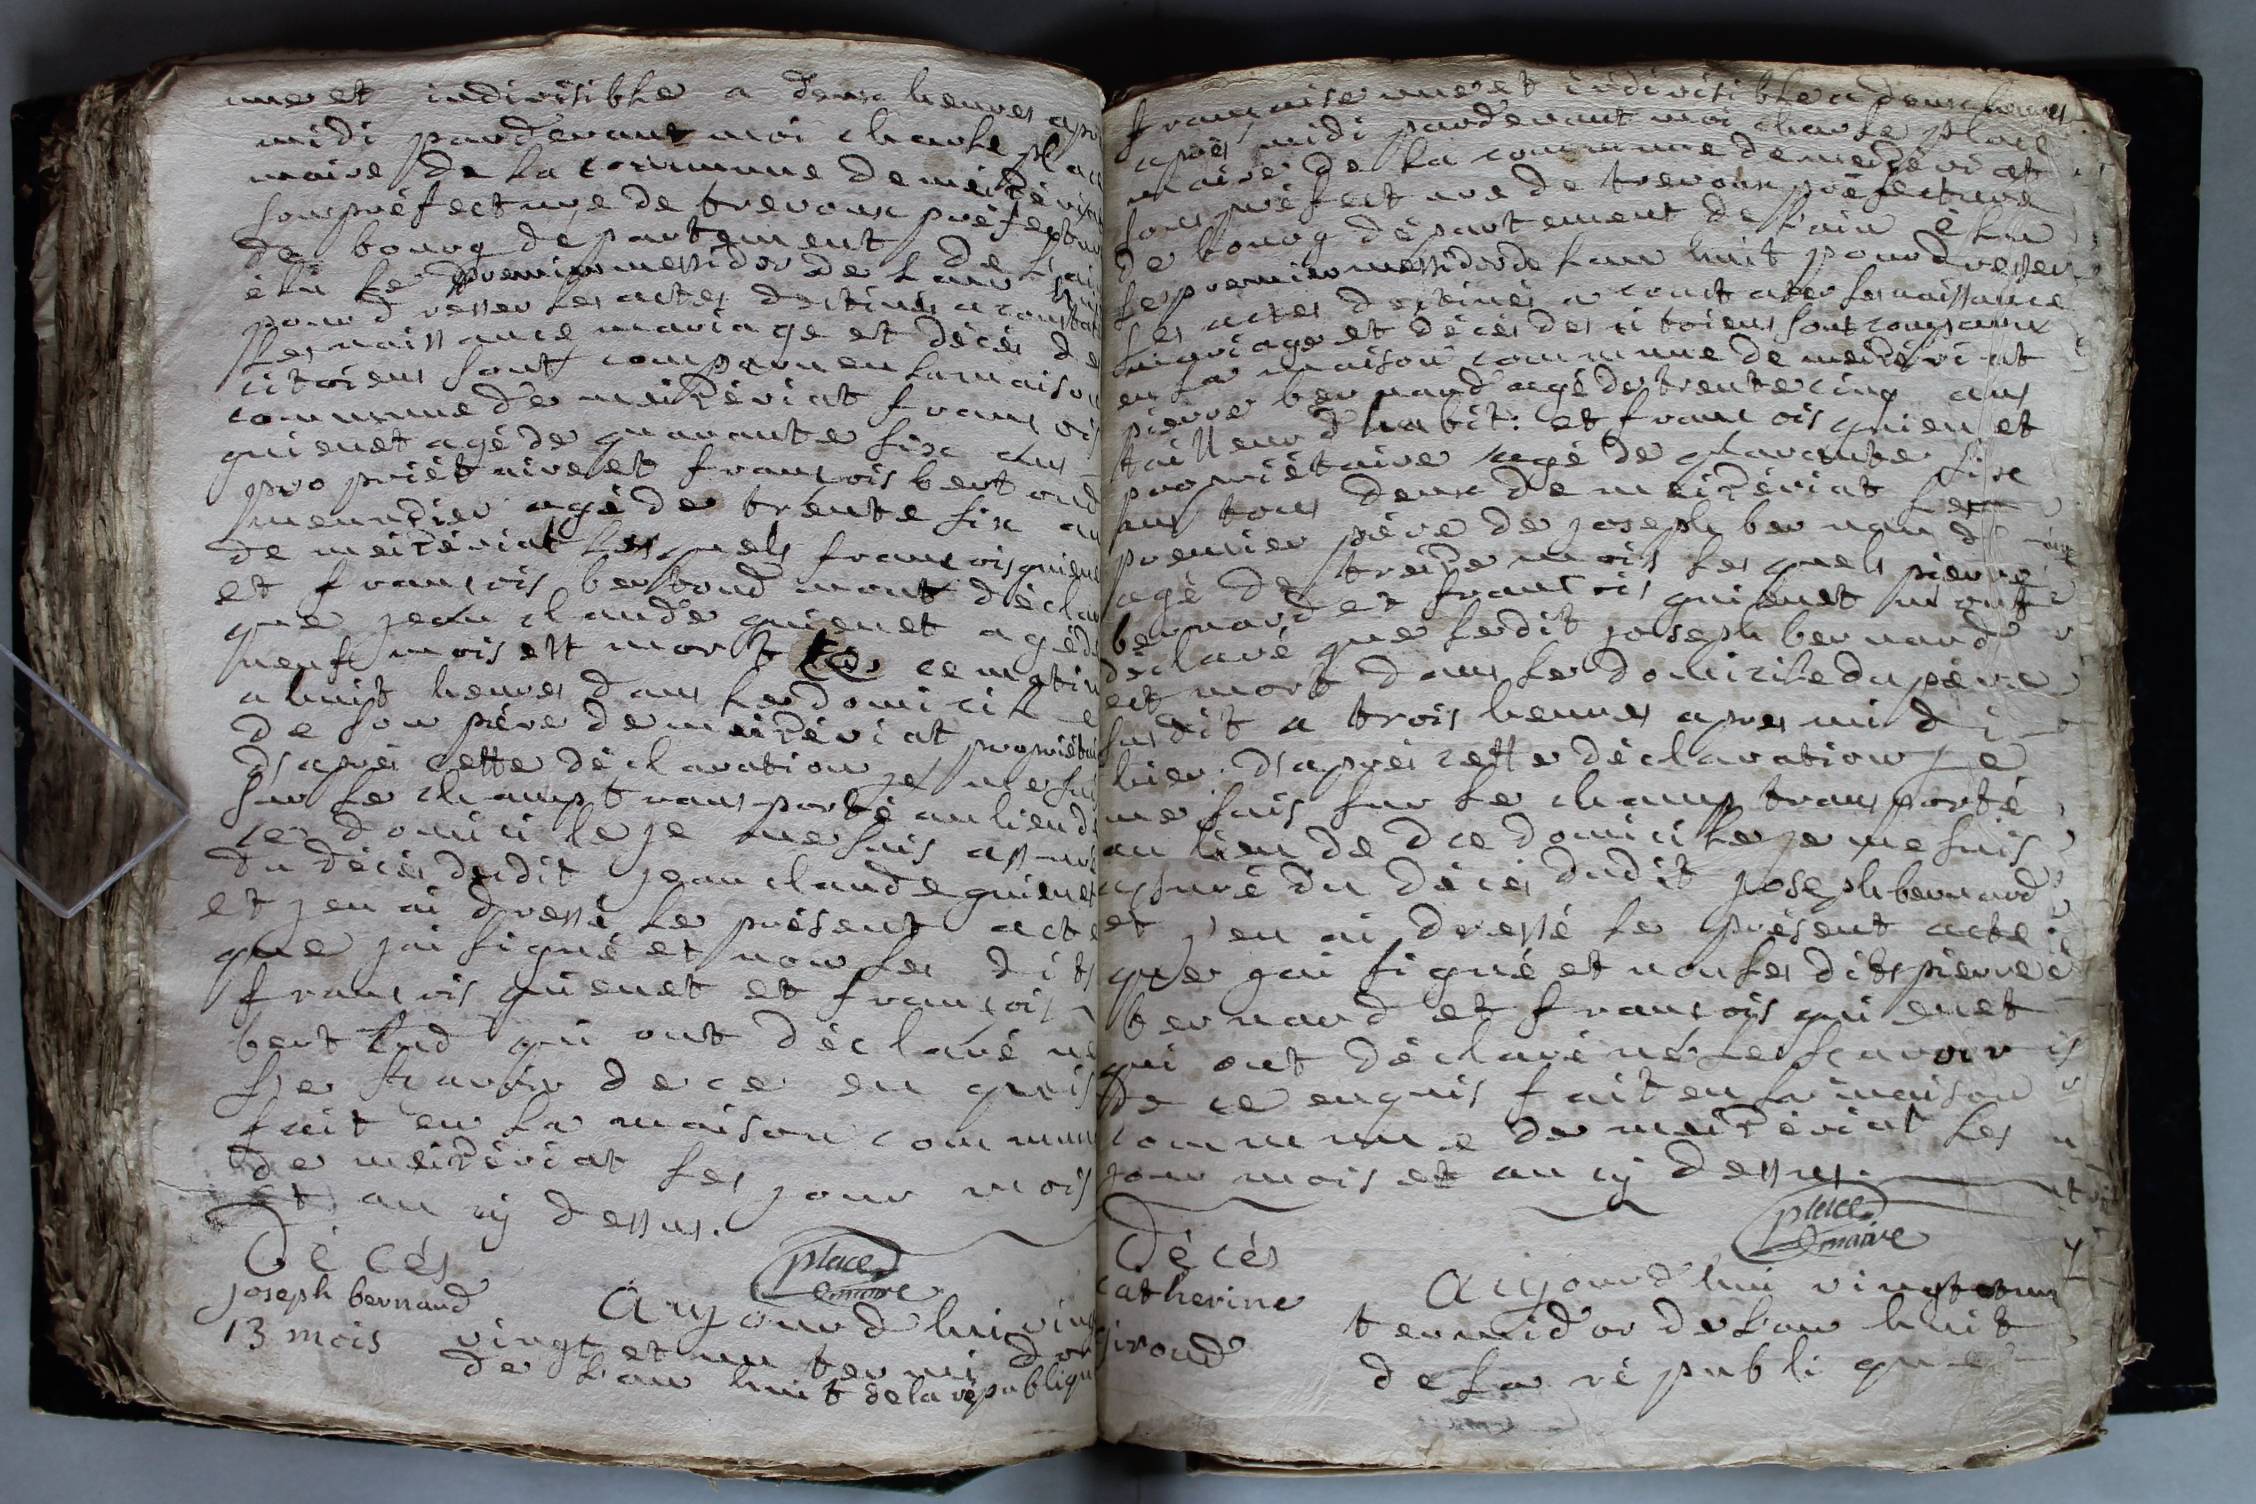 une et indivisible a deux heures apr
midi pardevant moi charle plac
maire de la commune de meizériat
souspréfecture de trevoux préfectur
de bourg département de l'ain
élu le premier messidor de l'an huit
pour dresser les actes destinés a constat
les naissance mariage et décès de
citoiens sont comparu en la maison
commune de meizériat francois
guienet agé de quarante six ans
propriétaire et francois bertond
meunzier agé de trente six an
de meizériat lesquels francois guiene
et francois bertond mont déclar
que jean claude guienet agé de
neuf mois est mort ce matin
a huit heures dans le domicile
de son père de meizériat propriétai
d'après cette déclaration je me suis
sur le champt transporté au lieu de
ce domicile je me suis assuré
du décès dudit jean claude guienet
et jen ai dressé le présent acte
que jai signé et non les dits
francois guienet et francois
bertond qui ont déclaré ne
le scavoir de ce enquis
fait en la maison commun
de meizériat les jour mois
et an cy dessus.
place
maire
Décés
joseph bernard
13 mois
Aujourd'hui ving
vingt et un termidor
de l'an huit de la républiqu
francaise une et indivisible a deux heures
après midi pardevant moi charle place
maire de la commune de meizériat
sous préfecture de trevoux préfecture
de bourg département de l'ain élu
le premier messidor de l'an huit pour dresser
les actes destinés a constater les naissance
mariage et décès des citoiens sont comparu
en la maison commune de meizériat
pierre bernard agé de trente cinq ans
tailleur d'habit: et francois guienet
propriétaire agé de quarante six
ans tous deux de meizériat le
premier père de joseph bernard
agé de treize mois lesquels pierre
bernard et francois guienet mont
déclaré que ledit joseph bernard
est mort dans le domicile du père
susdit a trois heures apres midi
hier. d'après cette déclaration je
me suis sur le champ transporté
au lieu de dce domicile je me suis
assuré du décès dudit joseph bernard
et j'en ai dressé le présent acte
que jai signé et non les dits pierre
bernard et francois guienet
qui ont déclaré ne le scavoir
de ce enquis fait en la maison
commune de meizériat les
jour mois et an cy dessus.
place
maire
Décés
catherine
giroud
Aujourd'hui vingt et un
termidor de l'an huit
de la république